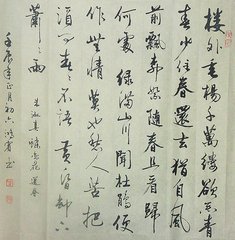 樓外垂楊千萬縷欲系青
春少住春還去猶自風
前飄柳絮隨春且看歸
何處綠滿山川聞杜鵑便
作無情莫也愁人苦把
酒送春春不語黃昏卻下
瀟瀟雨 朱淑真蝶戀花送春
壬辰年正月初六